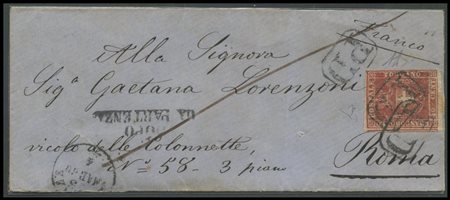 Franco
Alla Signora
Sigª Gaetana Lorenzoni
DA PARTENZA
vicolo delle Colonnette,
Nº 58. 3 piano
Roma